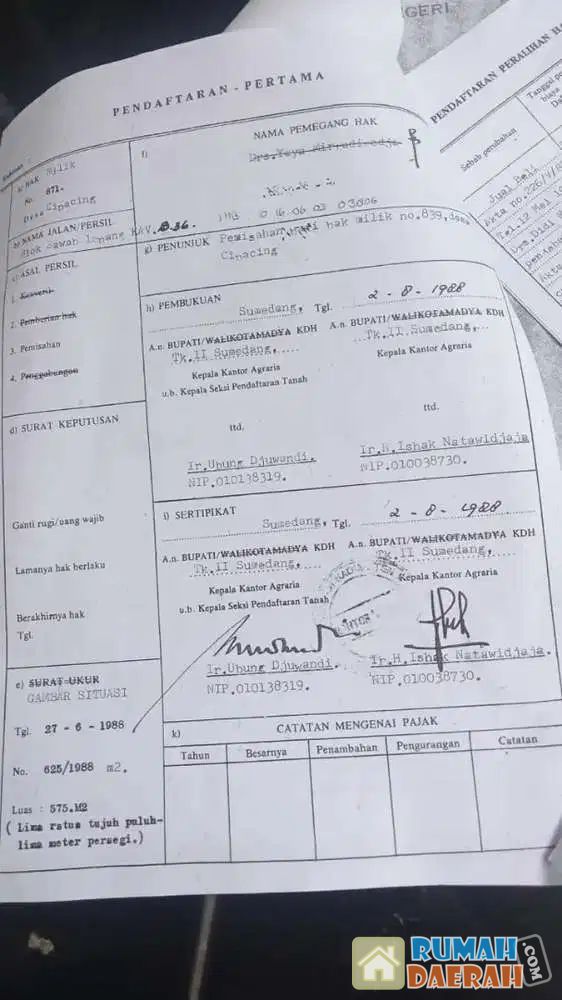 GERI
PENDAFTARAN - PERTAMA
a) HAK Milik
No. 871.-
Desa Cipacing
b) NAMA JALAN/PERSIL
Blok Sawah KAV. D.36.
c) ASAL PERSIL
1. Konversi
2. Pemberian hak
3. Pemisahan
4. Penggabungan
d) SURAT KEPUTUSAN
Ganti rugi/uang wajib
Lamanya hak berlaku
Berakhirnya hak
Tgl.
e) SURAT UKUR
GAMBAR SITUASI
Tgl. 27 - 6 - 1988
No. 625/1988 m2.
Luas : 575.M2
( Lima ratus tujuh puluh-
lima meter persegi.)
f)
NAMA PEMEGANG HAK
g) PENUNJUK Pemisahan hak milik no.839, desa
Cipacing
h) PEMBUKUAN
Sumedang, Tgl. 2-8-1988
A.n. BUPATI/WALIKOTAMADYA KDH A.n. BUPATI/WALIKOTAMADYA KDH
Tk.II Sumedang, Tk.II Sumedang,
Kepala Kantor Agraria Kepala Kantor Agraria
u.b. Kepala Seksi Pendaftaran Tanah
ttd. ttd.
Ir.Ubung Djuwandi. Ir.H.Ishak Natawidjaja
NIP.010138319. NIP.010038730.
i) SERTIPIKAT
Sumedang, Tgl. 2 - 8 - 1988
A.n. BUPATI/WALIKOTAMADYA KDH A.n. BUPATI/WALIKOTAMADYA KDH
Tk.II Sumedang. Tk.II Sumedang.
Kepala Kantor Agraria Kepala Kantor Agraria
u.b. Kepala Seksi Pendaftaran Tanah
Ir.Ubung Djuwandi. Ir.H.Ishak Natawidjaja.
NIP.010138319. NIP.010038730.
k) CATATAN MENGENAI PAJAK
Tahun Besarnya Penambahan Pengurangan Catatan
PENDAFTARAN PERALIHAN HA
Sebab perubahan
Jual Beli
Akta no.226/
Tgl.12 Mei
Drs.Didi
RUMAH
DAERAH.COM